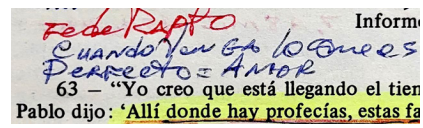 Fede RAPTO
Informe
CUANDO VENGA lo
PERFECTO = AMOR
63 — “Yo creo que está llegando el tien
Pablo dijo: ‘Allí donde hay profecías, estas fa